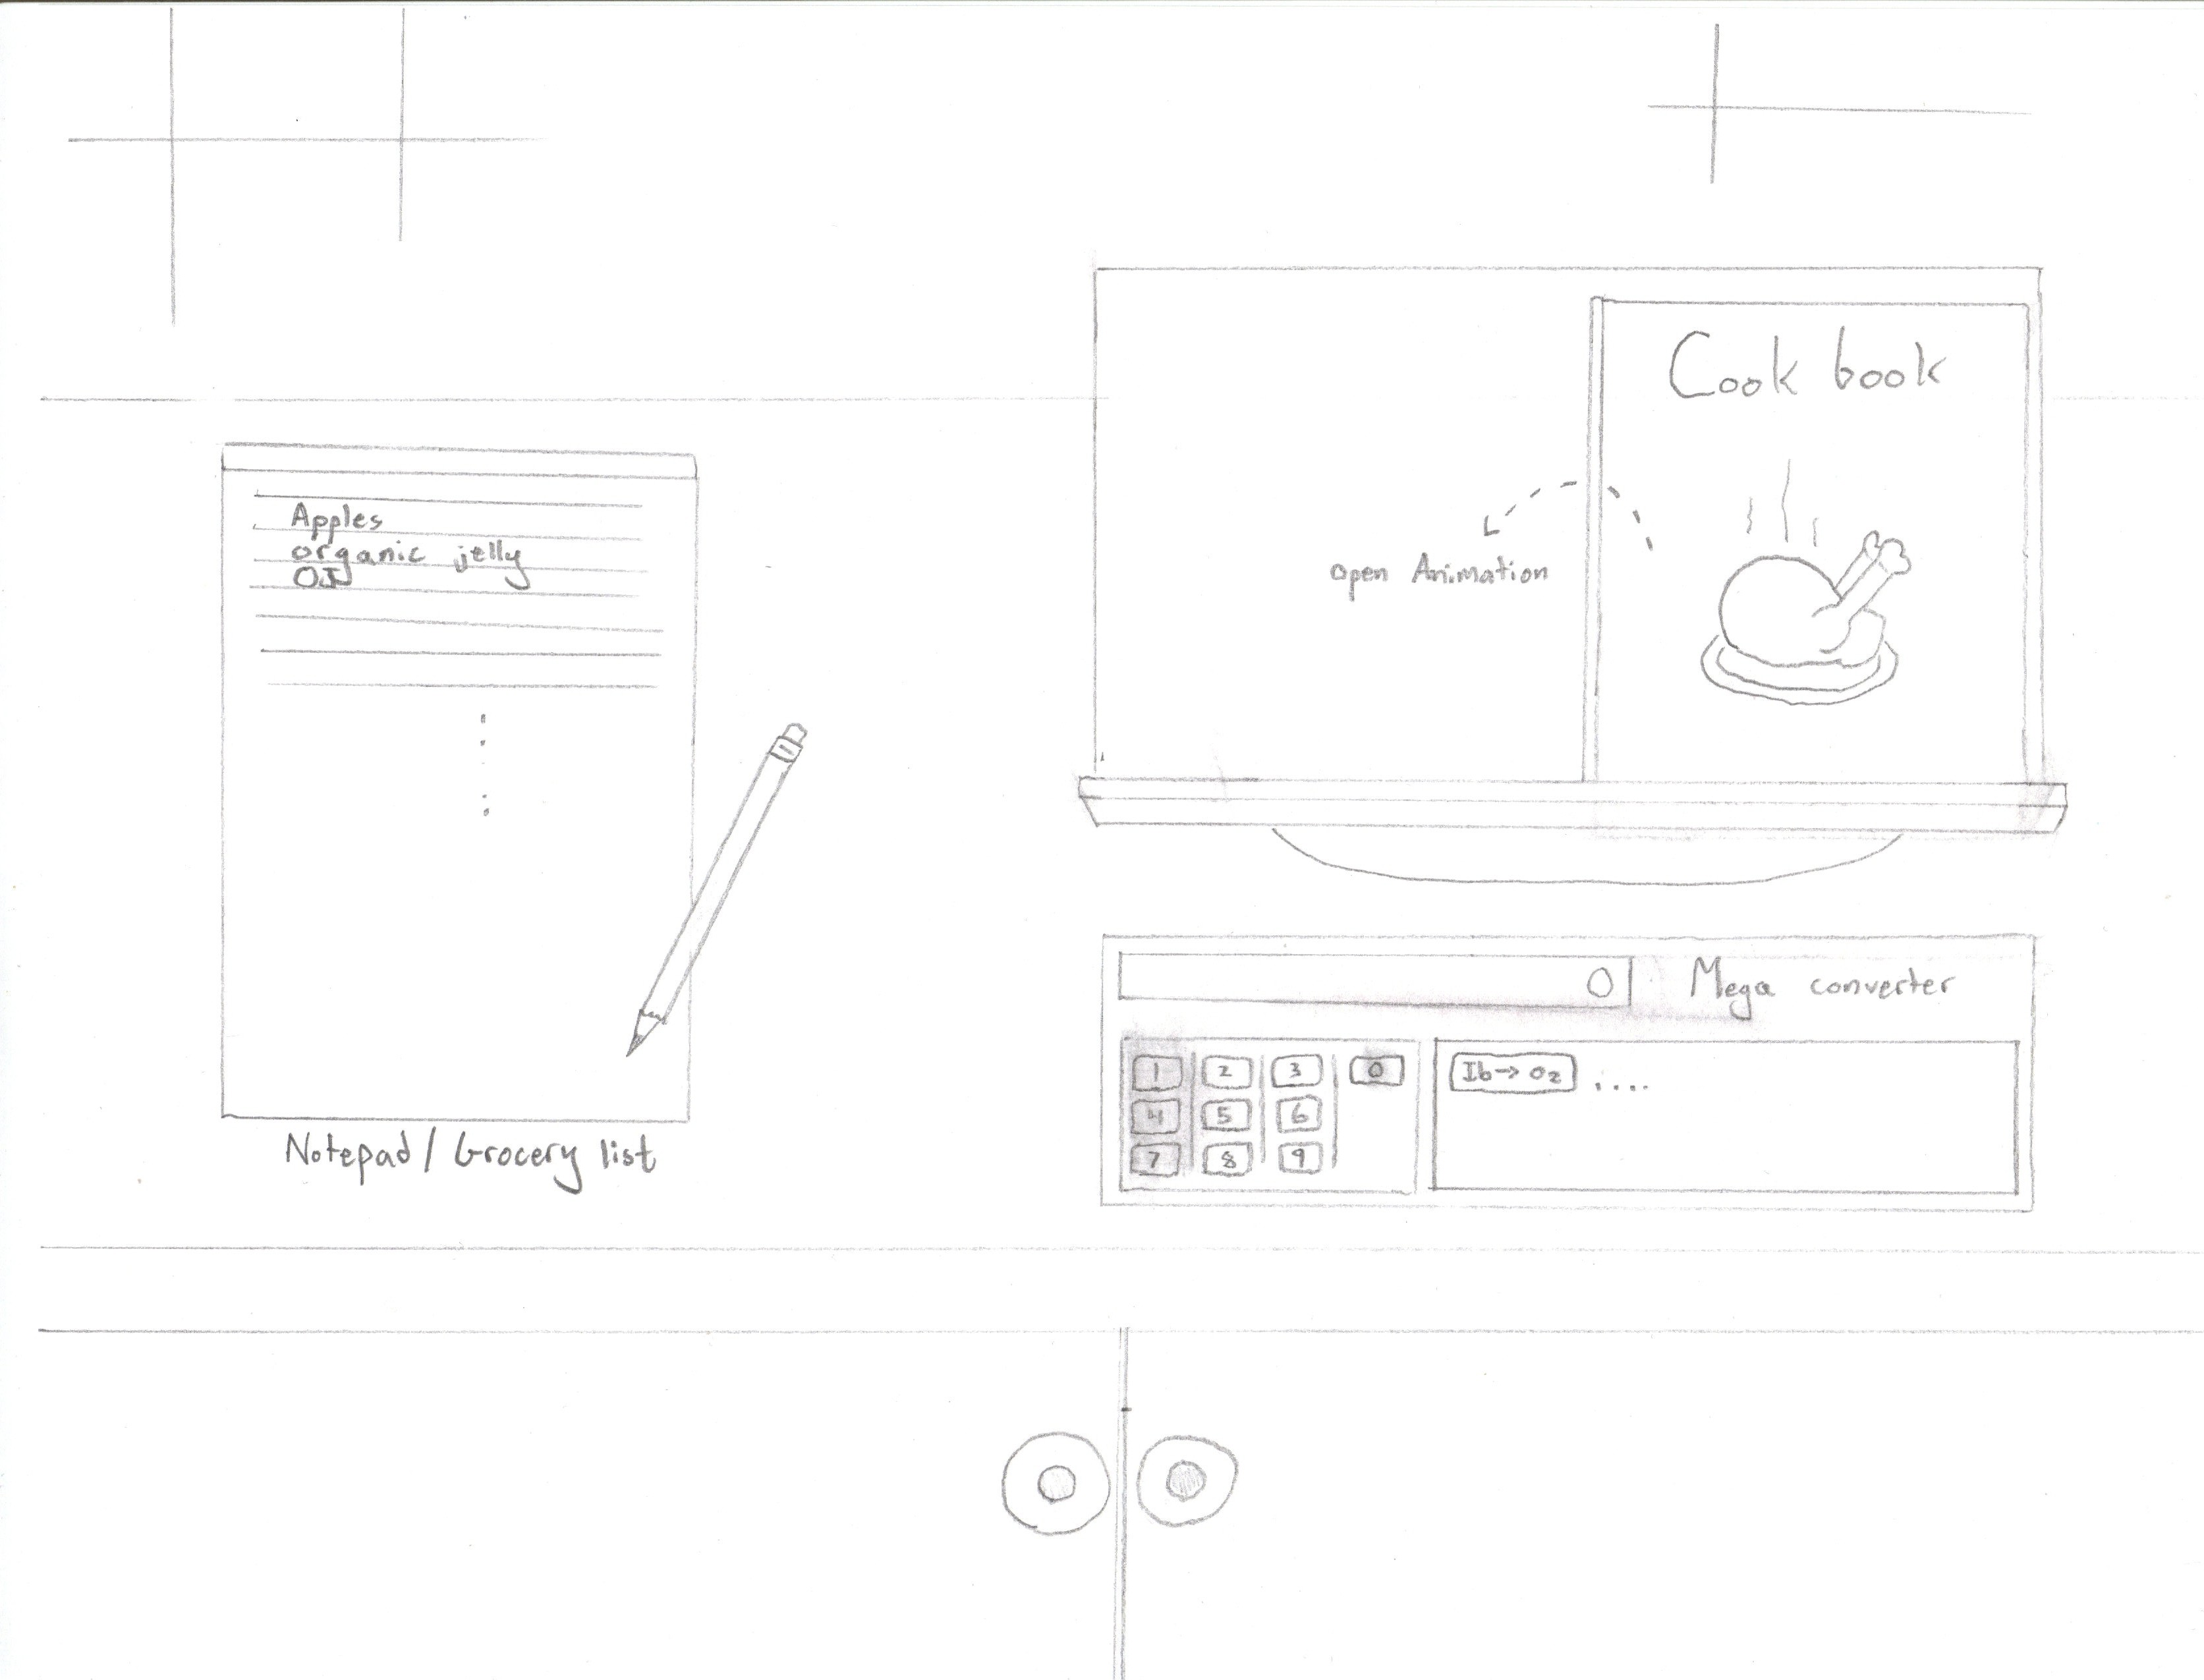 Apples
organic jelly
OJ
Notepad / Grocery list
Cook book
open Animation
0
Mega converter
1 2 3 0
4 5 6
7 8 9
lb→oz ....